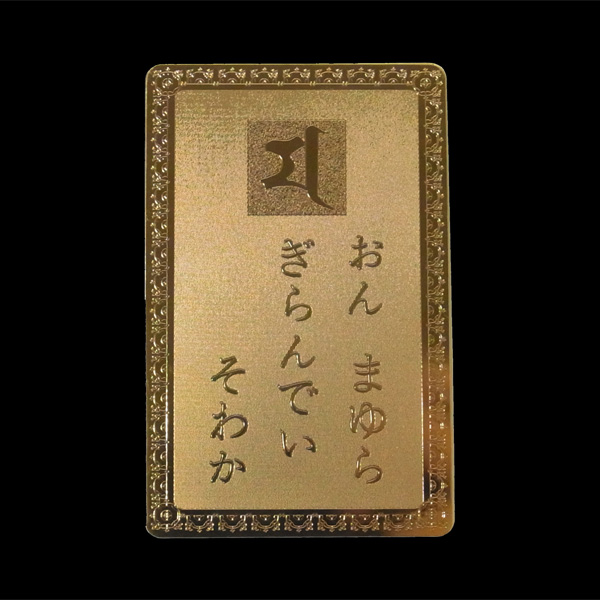 मं
おん まゆら
ぎらんでい
そわか